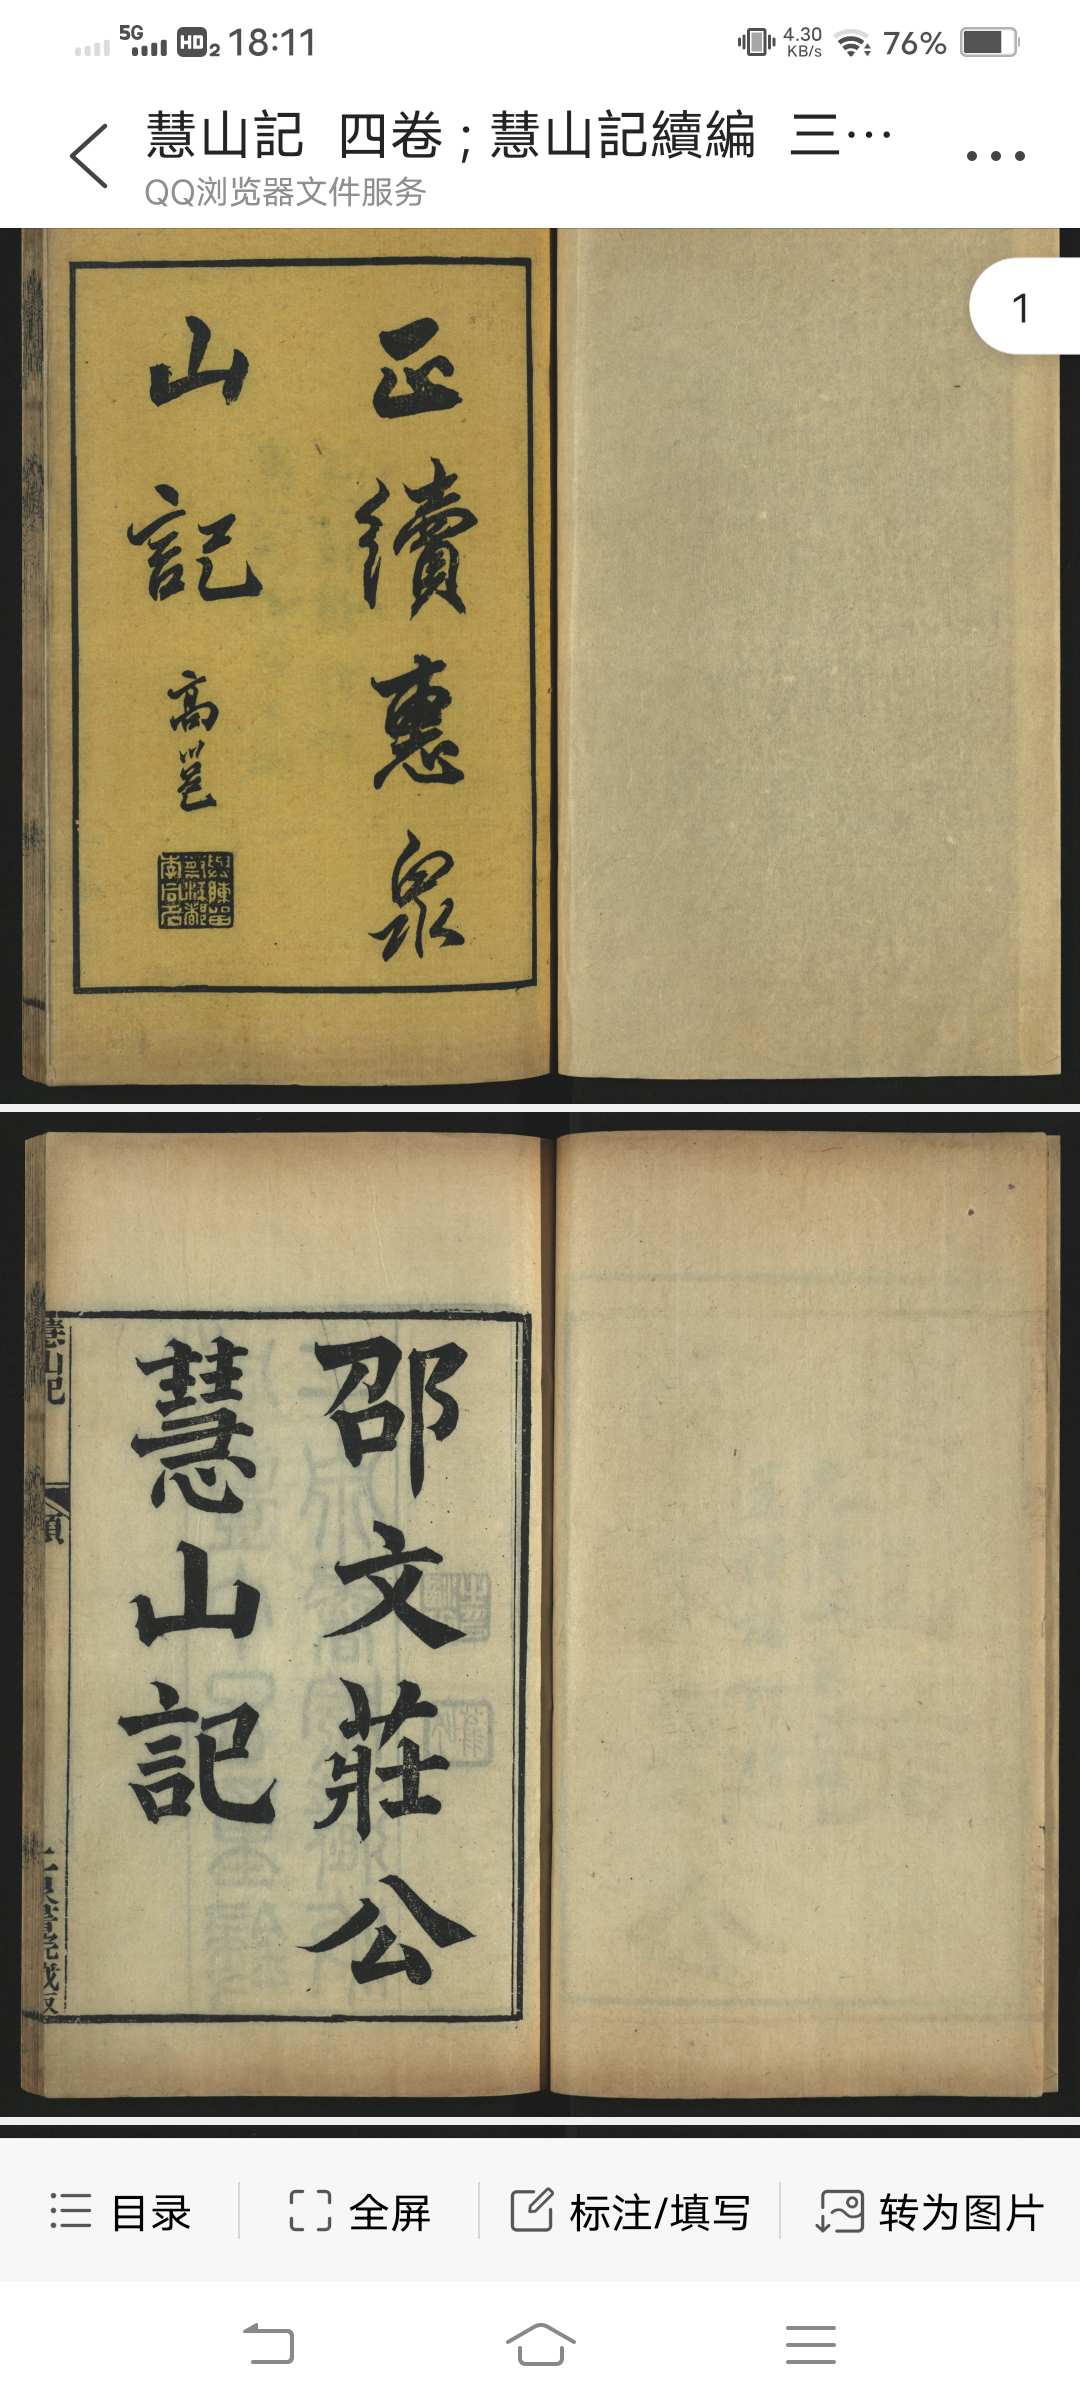 5G HD 2 18:11 4.30 KB/s 76%
慧山記 四卷；慧山記續編 三…
QQ浏览器文件服务
1
正續惠泉
山記
高邕
邵文莊公
慧山記
慧山記
二泉書院藏版
目录 全屏 标注/填写 转为图片